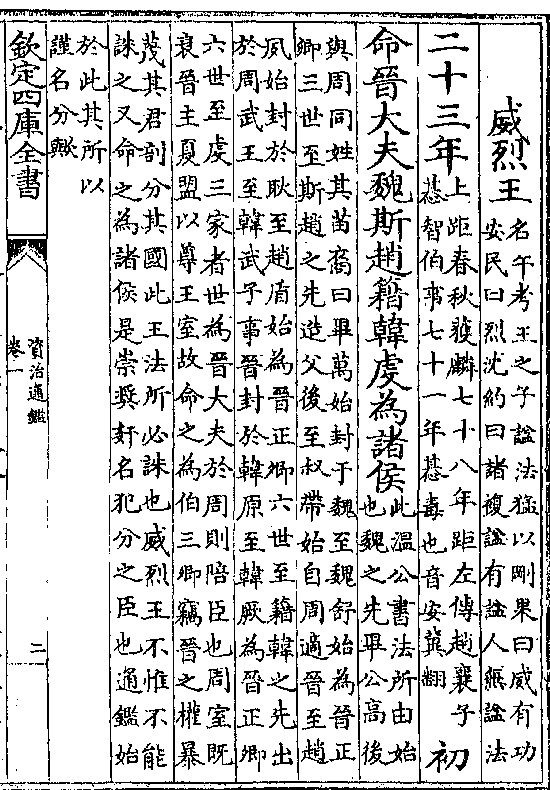 威烈王
名午考王之子諡法猛以剛果曰威有功
安民曰烈沈約曰諸複諡有諡人無諡法
二十三年
上距春秋獲麟七十八年距左傳趙襄子
惎智伯事七十一年惎毒也音安冀翻
初
命晉大夫魏斯趙籍韓虔為諸侯
此溫公書法所由始
也魏之先畢公高後
與周同姓其苗裔曰畢萬始封于魏至魏舒始為晉正
卿三世至斯趙之先造父後至叔帶始自周適晉至趙
夙始封於耿至趙盾始為晉正卿六世至籍韓之先出
於周武王至韓武子事晉封於韓原至韓厥為晉正卿
六世至虔三家者世為晉大夫於周則陪臣也周室既
衰晉主夏盟以尊王室故命之為伯三卿竊晉之權暴
蔑其君剖分其國此王法所必誅也威烈王不惟不能
誅之又命之為諸侯是崇奬奸名犯分之臣也通鑑始
於此其所以
謹名分歟
欽定四庫全書
資治通鑑
卷一
二